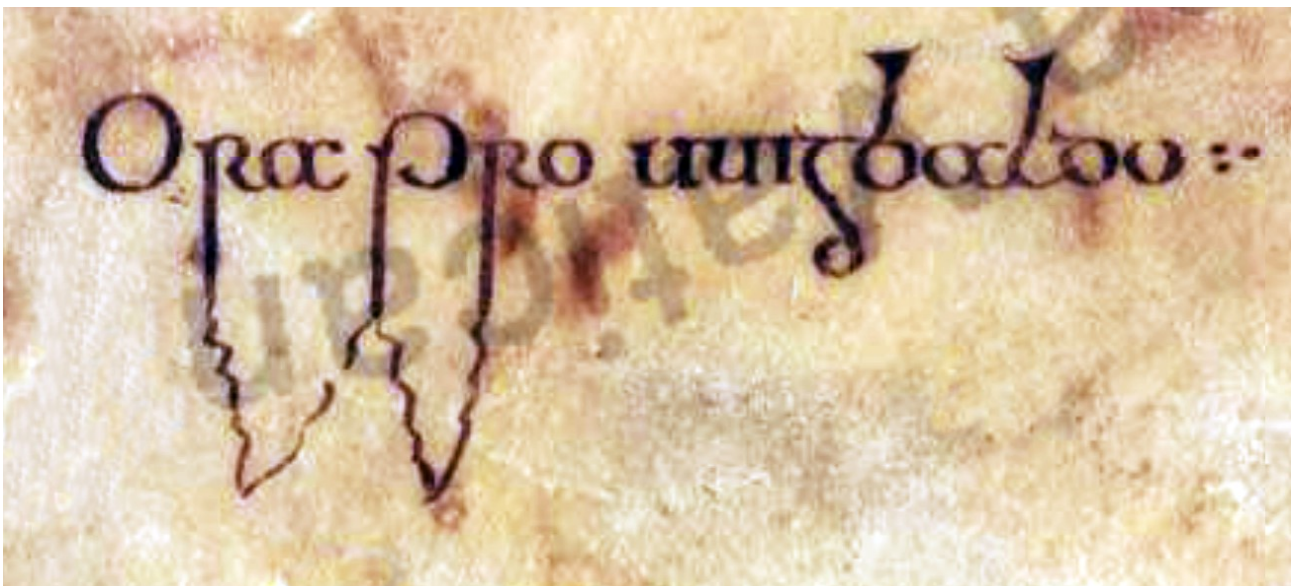 Ora pro uuigbaldo :·